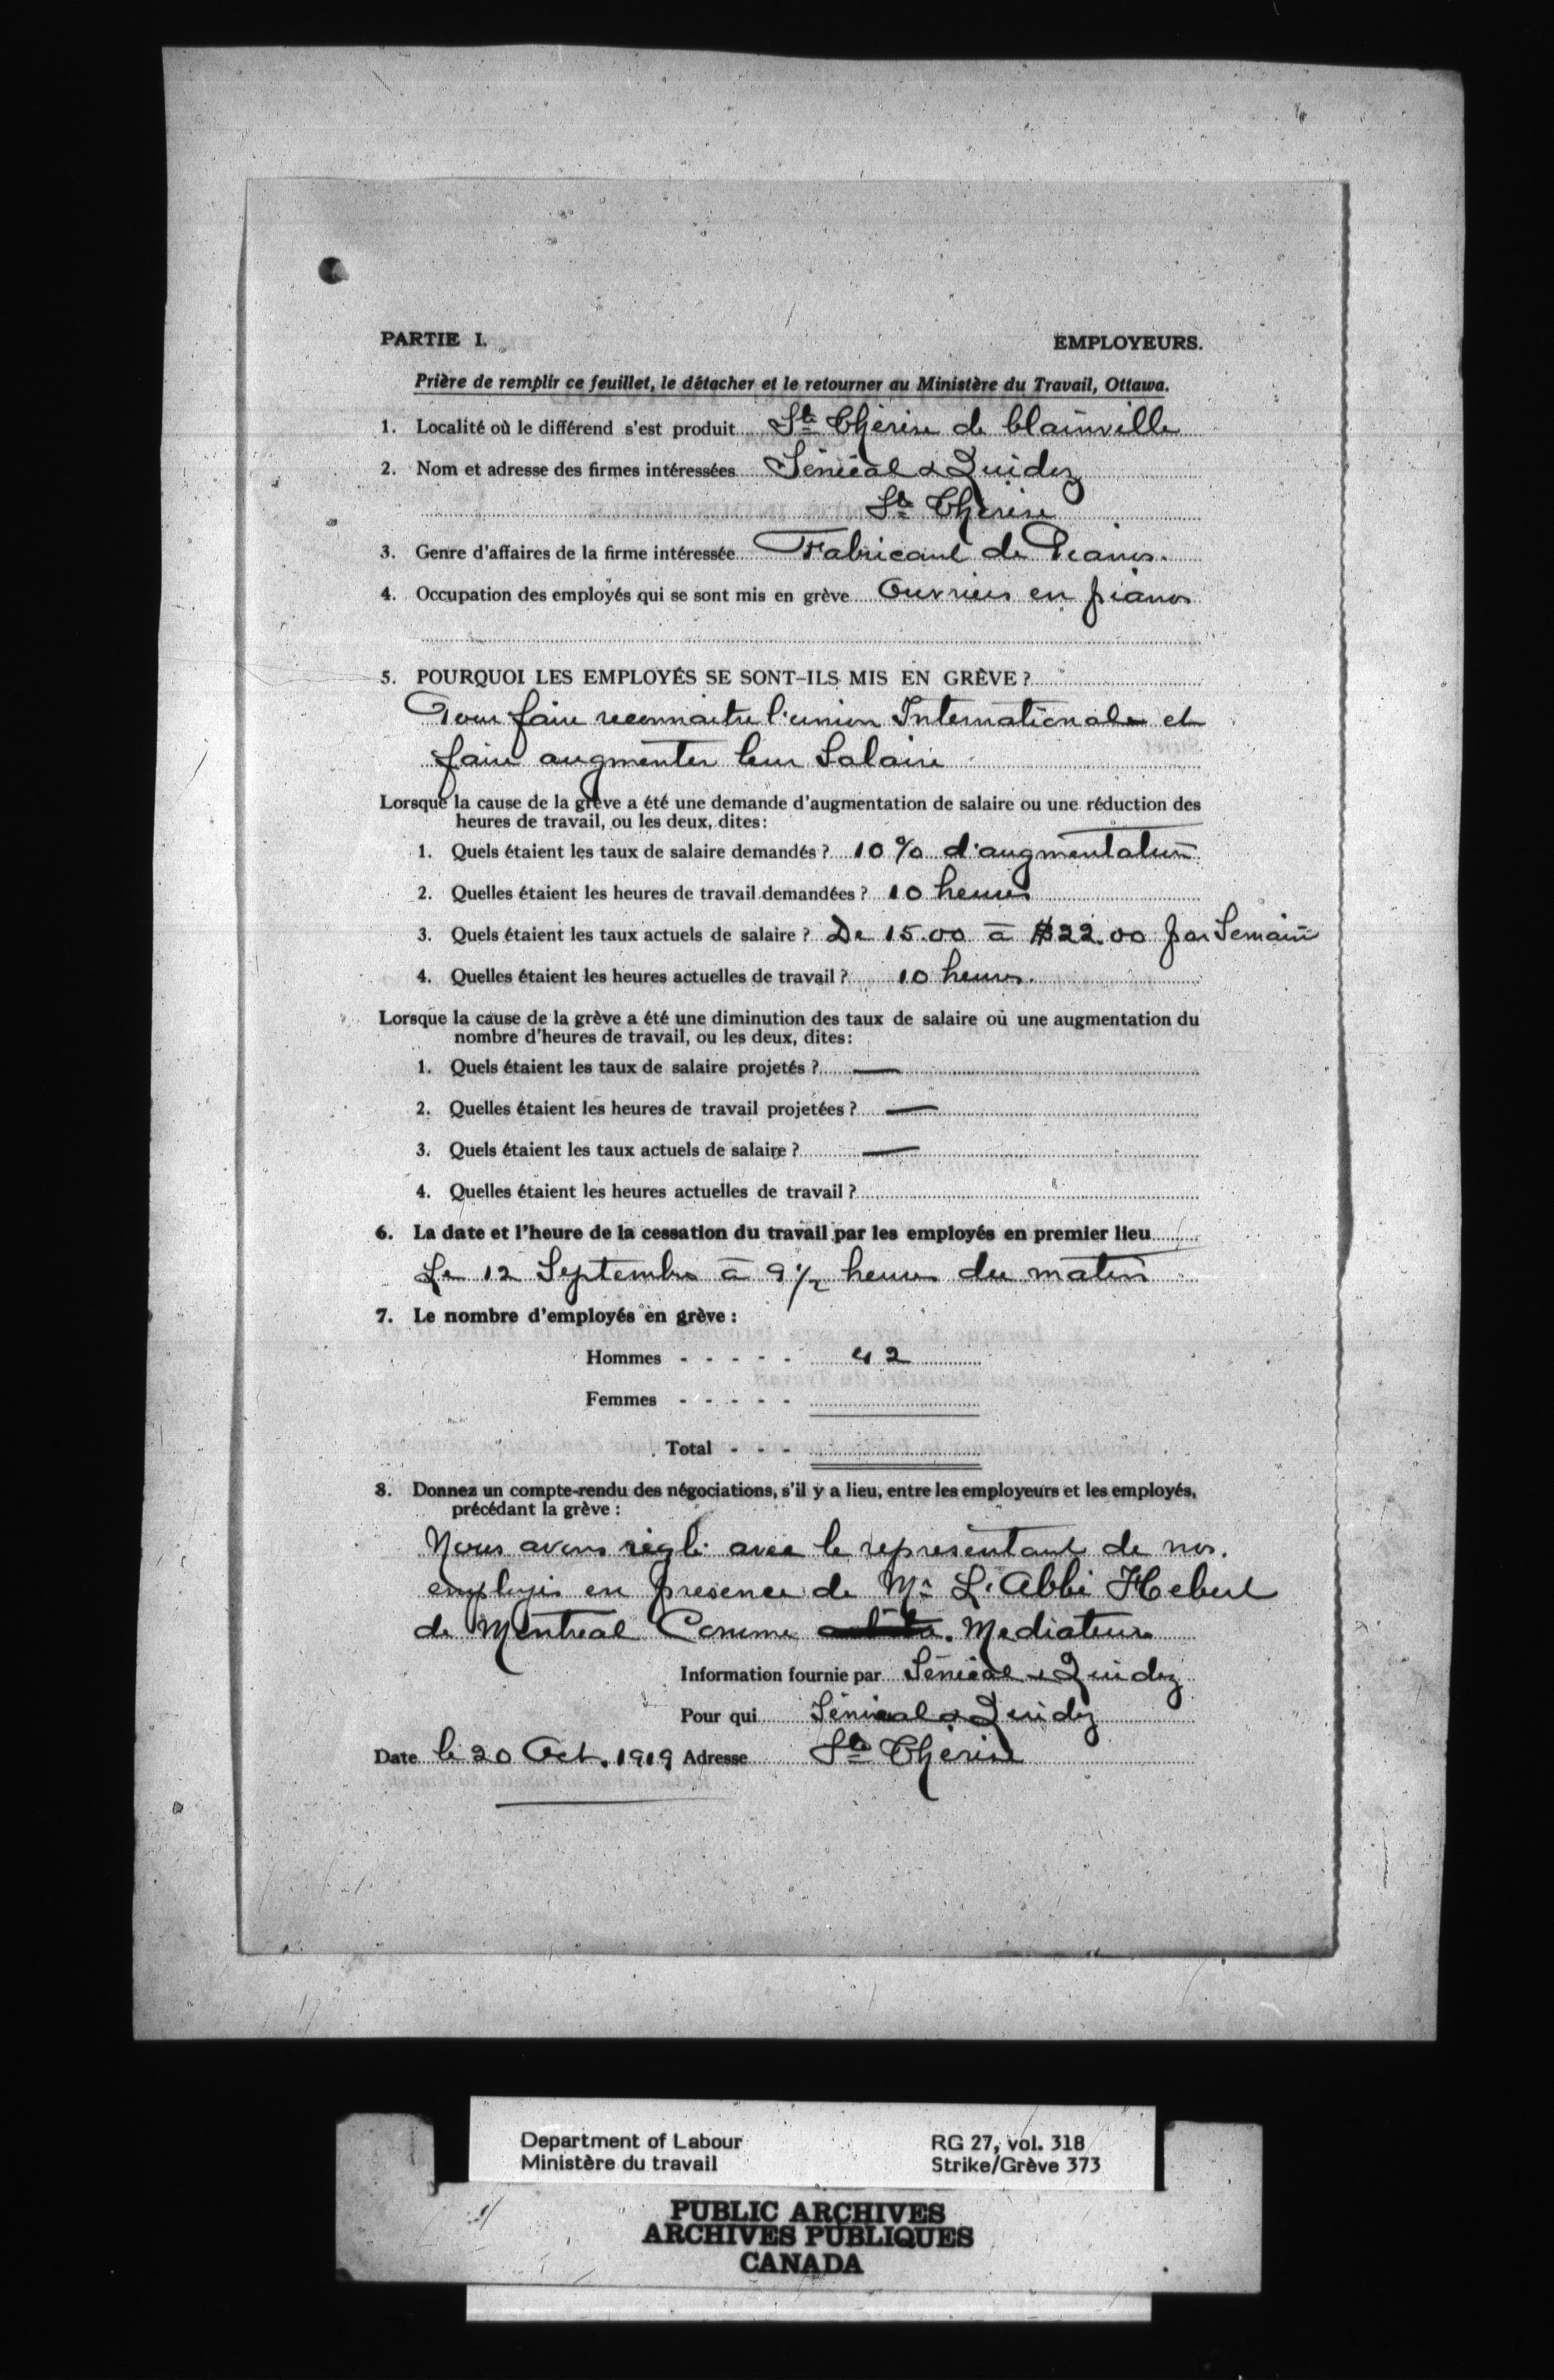 PARTIE I. EMPLOYEURS.
Prière de remplir ce feuillet, le détacher et le retourner au Ministère du Travail, Ottawa.
1. Localité où le différend s'est produit Ste Thérèse de blainville
2. Nom et adresse des firmes intéressées Sénécal & Quidoz
Ste Thérèse
3. Genre d'affaires de la firme intéressée Fabricant de Pianos.
4. Occupation des employés qui se sont mis en grève Ouvriers en pianos
5. POURQUOI LES EMPLOYÉS SE SONT-ILS MIS EN GRÈVE?
Pour faire reconnaitre l'union Internationale et
faire augmenter leur Salaire
Lorsque la cause de la grève a été une demande d'augmentation de salaire ou une réduction des
heures de travail, ou les deux, dites:
1. Quels étaient les taux de salaire demandés? 10 % d'augmentation
2. Quelles étaient les heures de travail demandées? 10 heures
3. Quels étaient les taux actuels de salaire? De 15.00 à $22.00 par Semaine
4. Quelles étaient les heures actuelles de travail? 10 heures.
Lorsque la cause de la grève a été une diminution des taux de salaire où une augmentation du
nombre d'heures de travail, ou les deux, dites:
1. Quels étaient les taux de salaire projetés? —
2. Quelles étaient les heures de travail projetées? —
3. Quels étaient les taux actuels de salaire? —
4. Quelles étaient les heures actuelles de travail?
6. La date et l'heure de la cessation du travail par les employés en premier lieu
Le 12 Septembre à 9 1/2 heures du matin
7. Le nombre d'employés en grève:
Hommes - - - - - 42
Femmes - - - - -
Total - - -
8. Donnez un compte-rendu des négociations, s'il y a lieu, entre les employeurs et les employés,
précédant la grève:
Nous avons réglé avec le représentant de nos.
employés en presence de Mr L'Abbé Hebert
de Montreal Comme Mediateur
Information fournie par Sénécal & Quidoz
Pour qui Sénécal & Quidoz
Date le 20 Oct. 1919 Adresse Ste Thérèse
Department of Labour RG 27, vol. 318
Ministère du travail Strike/Grève 373
PUBLIC ARCHIVES
ARCHIVES PUBLIQUES
CANADA